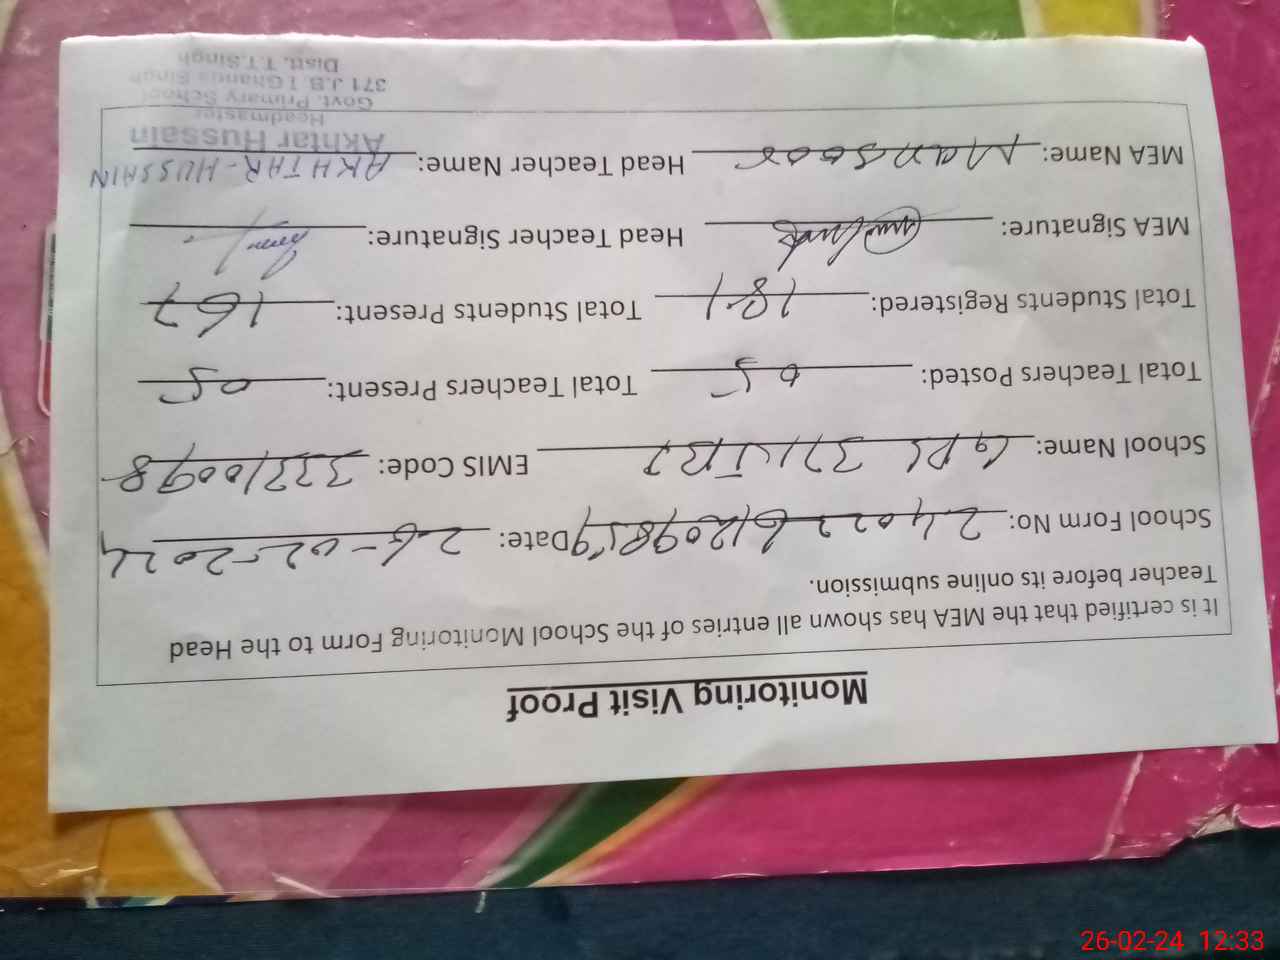 Monitoring Visit Proof
It is certified that the MEA has shown all entries of the School Monitoring Form to the Head
Teacher before its online submission.
School Form No: Date: 26-02-2024
School Name: GPS 371 JB EMIS Code: 33310098
Total Teachers Posted: 05 Total Teachers Present: 05
Total Students Registered: 181 Total Students Present: 167
MEA Signature: Head Teacher Signature:
MEA Name: Mansoor Head Teacher Name: AKHTAR-HUSSAIN
Akhtar Hussain
Headmaster
Govt. Primary School
371 J.B. I Ghanda Singh
Distt. T.T.Singh
26-02-24 12:33